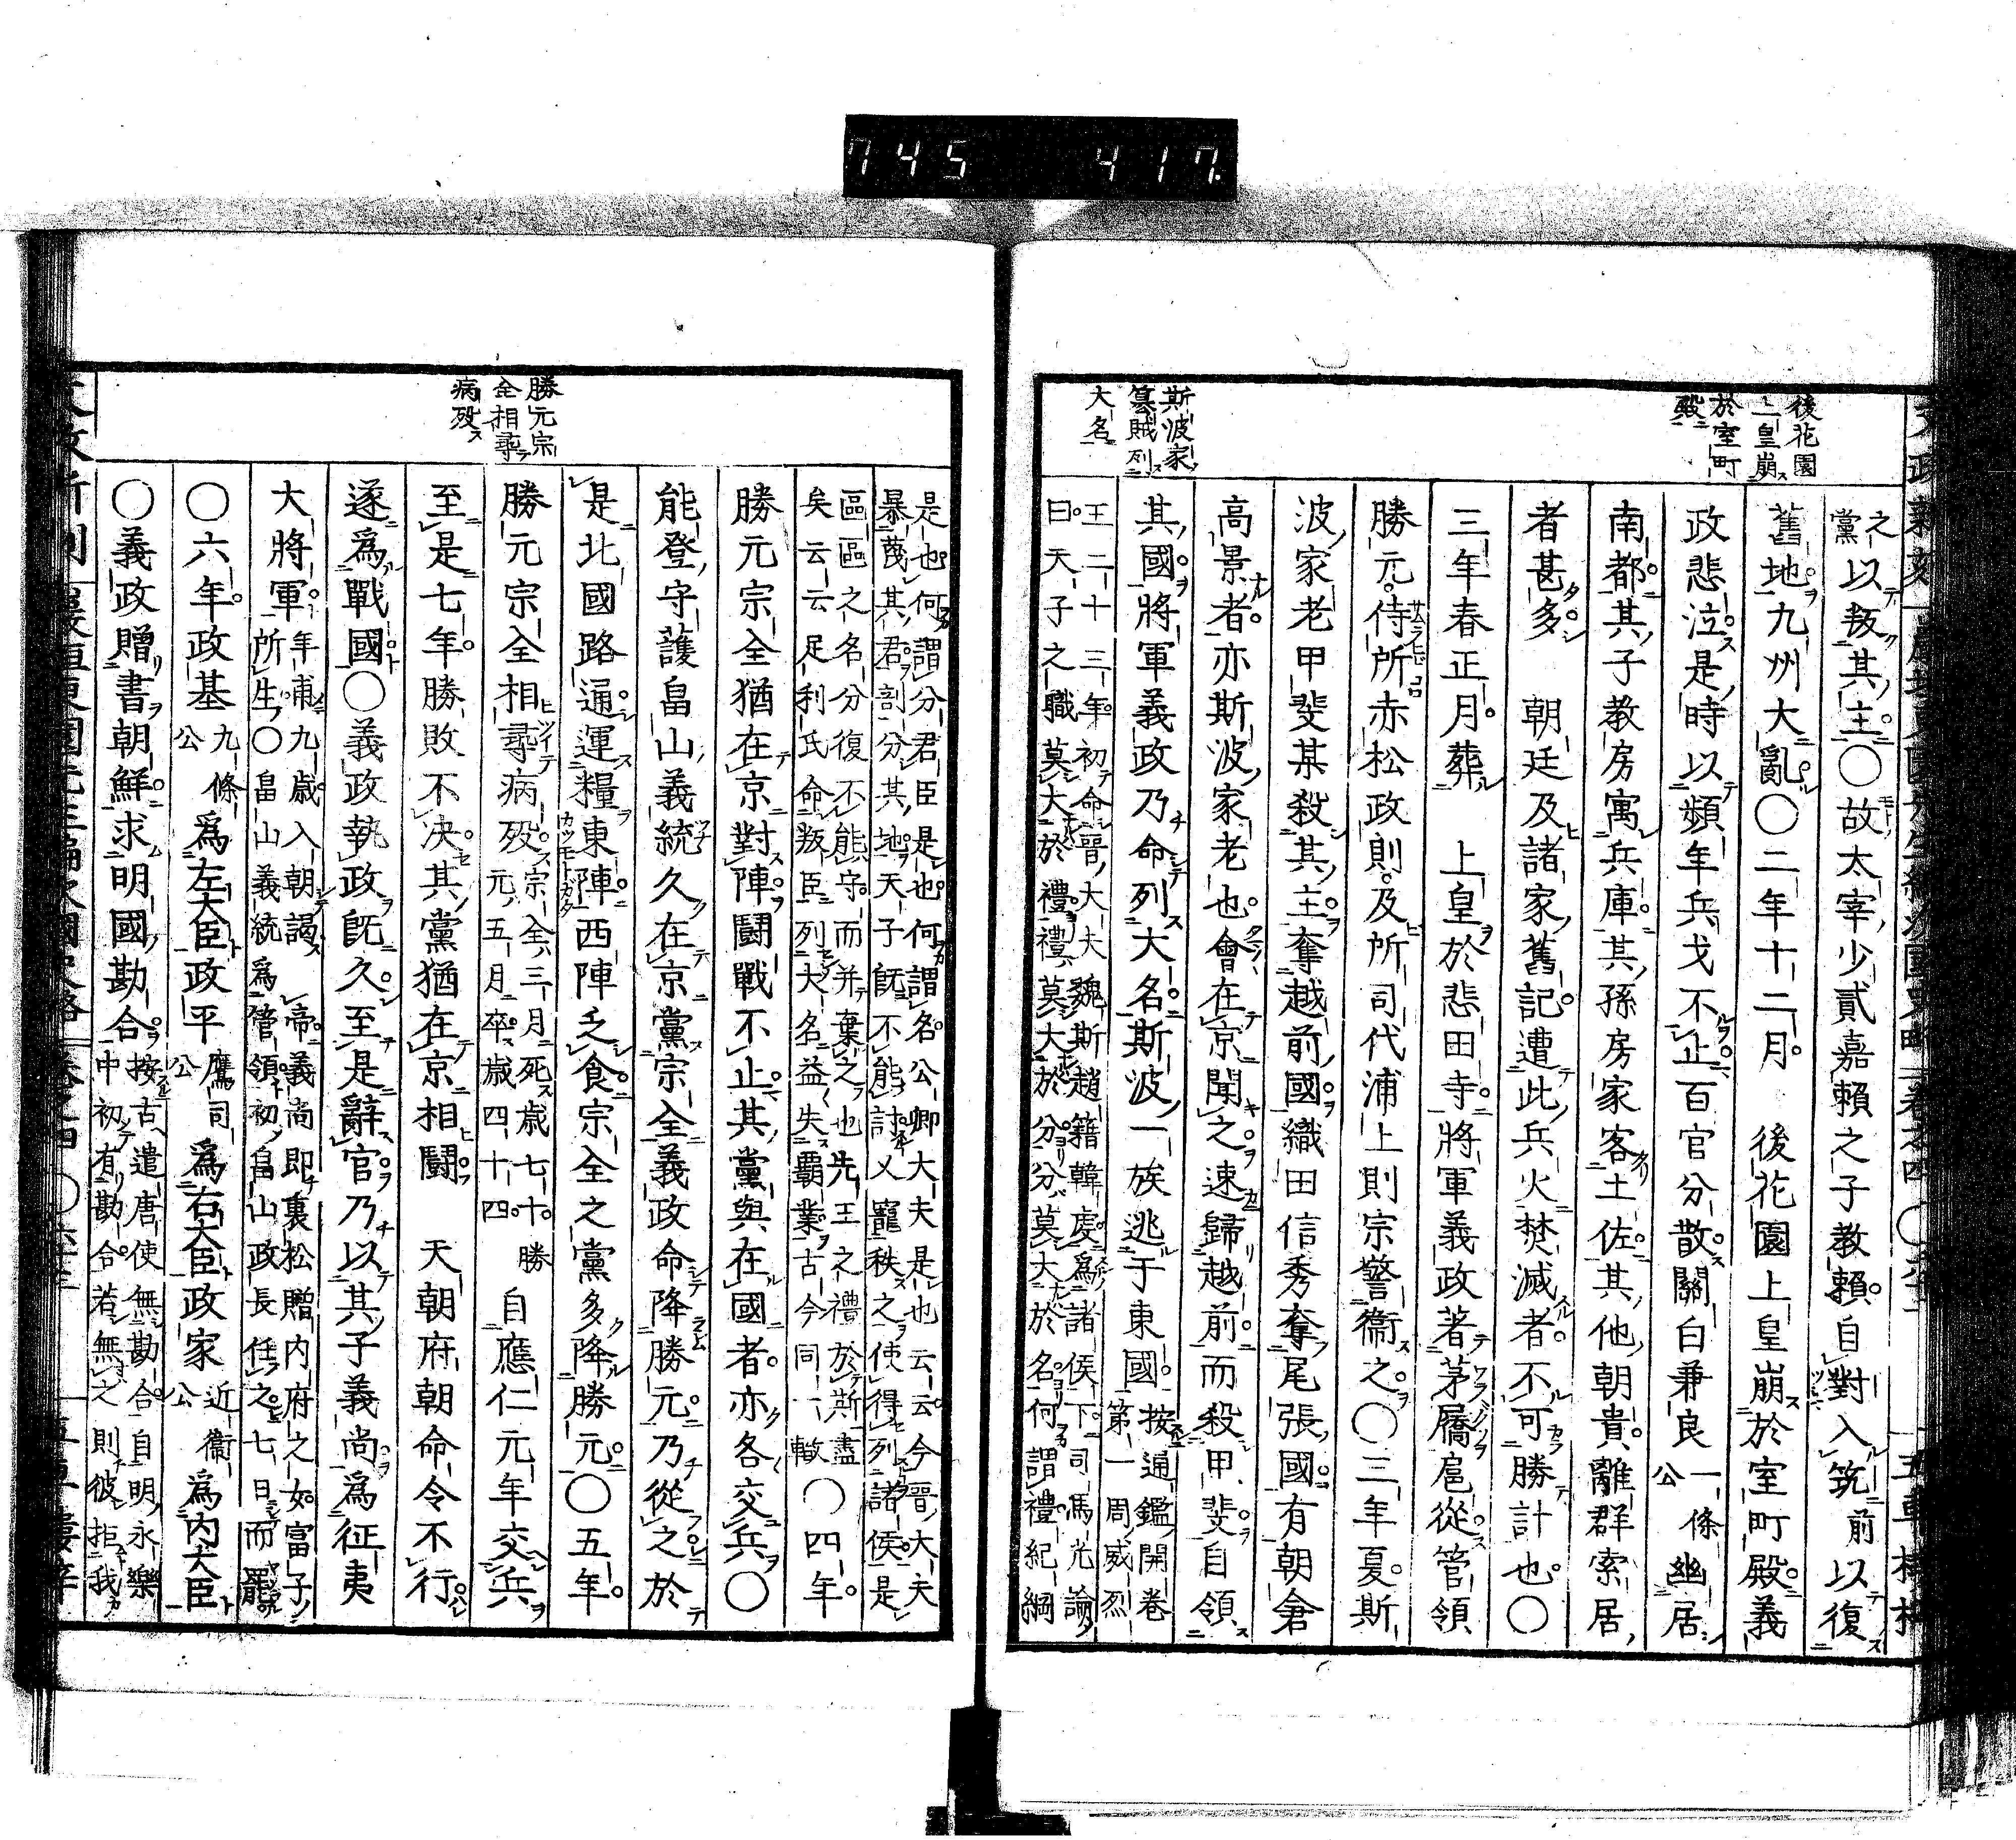 745 417
後花園
上皇崩
於室町
殿
斯波家
篡賊列
大名
之黨以叛其主〇故太宰少貳嘉賴之子教賴自對入筑前以復
舊地九州大亂〇二年十二月 後花園上皇崩於室町殿義
政悲泣是時以頻年兵戈不止百官分散關白兼良一條公幽居
南都其子教房寓兵庫其孫房家客土佐其他朝貴離群索居
者甚多 朝廷及諸家舊記遭此兵火焚滅者不可勝計也〇
三年春正月葬 上皇於悲田寺將軍義政著茅屩扈從管領
勝元侍所赤松政則及所司代浦上則宗警衞之〇三年夏斯
波家老甲斐某殺其主奪越前國織田信秀奪尾張國有朝倉
高景者亦斯波家老也會在京聞之速歸越前而殺甲斐自領
其國將軍義政乃命列大名斯波一族逃于東國按通鑑開卷第一周威烈
王二十三年初命晉大夫魏斯趙籍韓虔爲諸侯下司馬光論
曰天子之職莫大於禮禮莫大於分分莫大於名何謂禮紀綱
勝元宗
全相尋
病歿
是也何謂分君臣是也何謂名公卿大夫是也云云今晉大夫
暴蔑其君剖分其地天子既不能討又寵秩之使得列諸侯是
區區之名分復不能守而并棄之也先王之禮於斯盡
矣云云足利氏命叛臣列大名益失覇業古今同一轍〇四年
勝元宗全猶在京對陣鬪戰不止其黨與在國者亦各交兵〇
能登守護畠山義統久在京黨宗全義政命降勝元乃從之於
是北國路通運糧東陣西陣乏食宗全之黨多降勝元〇五年
勝元宗全相尋病歿宗全三月死歲七十勝元五月卒歲四十四自應仁元年交兵
至是七年勝敗不決其黨猶在京相鬪 天朝府朝命令不行
遂爲戰國〇義政執政既久至是辭官乃以其子義尚爲征夷
大將軍年甫九歲入朝謁帝義尚即裏松贈內府之女富子所生〇畠山義統爲管領初畠山政長任之七日而罷
〇六年政基九條公爲左大臣政平鷹司公爲右大臣政家近衞公爲內大臣
〇義政贈書朝鮮求明國勘合按古遣唐使無勘合自明永樂中初有勘合若無之則彼拒我